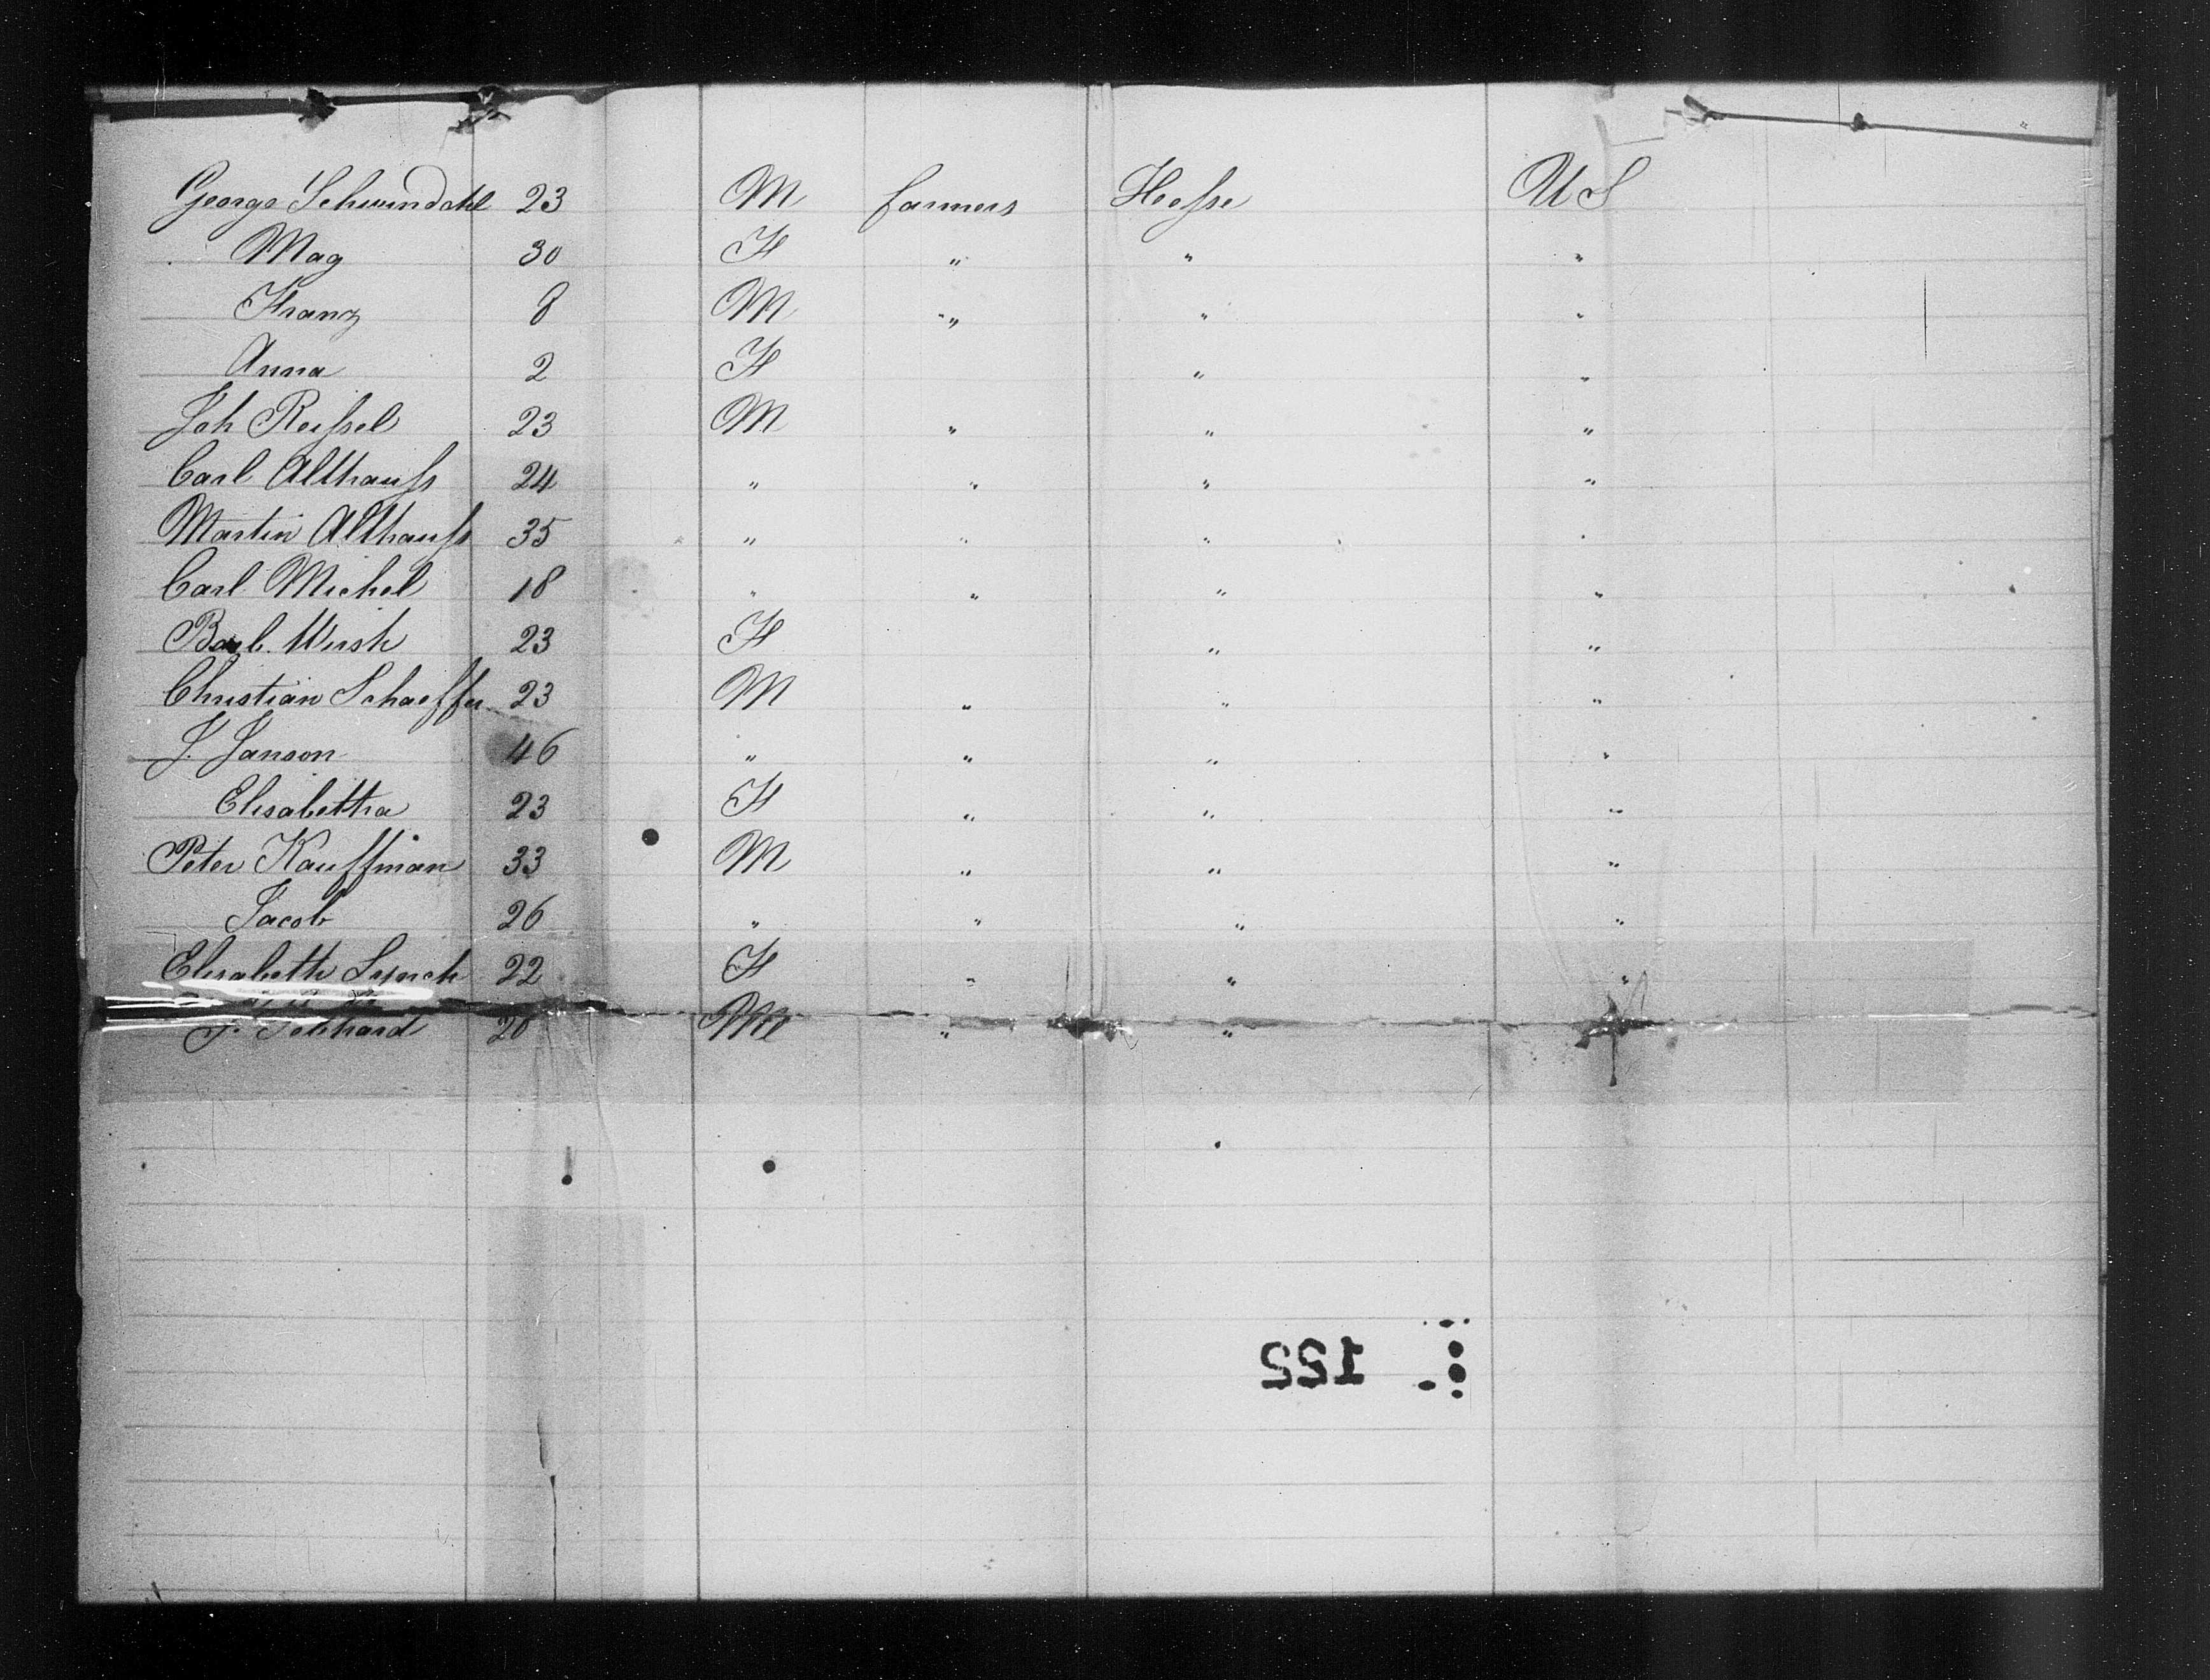 George Schwindahl 23 M farmers Hesse U S
Mag 30 F " " "
Franz 8 M " " "
Anna 2 F " "
Joh Reissel 23 M " " "
Carl Althauss 24 " " " "
Martin Althauss 35 " " " "
Carl Michel 18 " " " "
Barb. 23 F " "
Christian Schaeffer 23 M " " "
J. Janson 46 " " " "
Elisabetha 23 F " " "
Peter Kauffman 33 M " " "
Jacob 26 " " " "
Elisabeth Lynch 22 F " " "
20 M " "
122